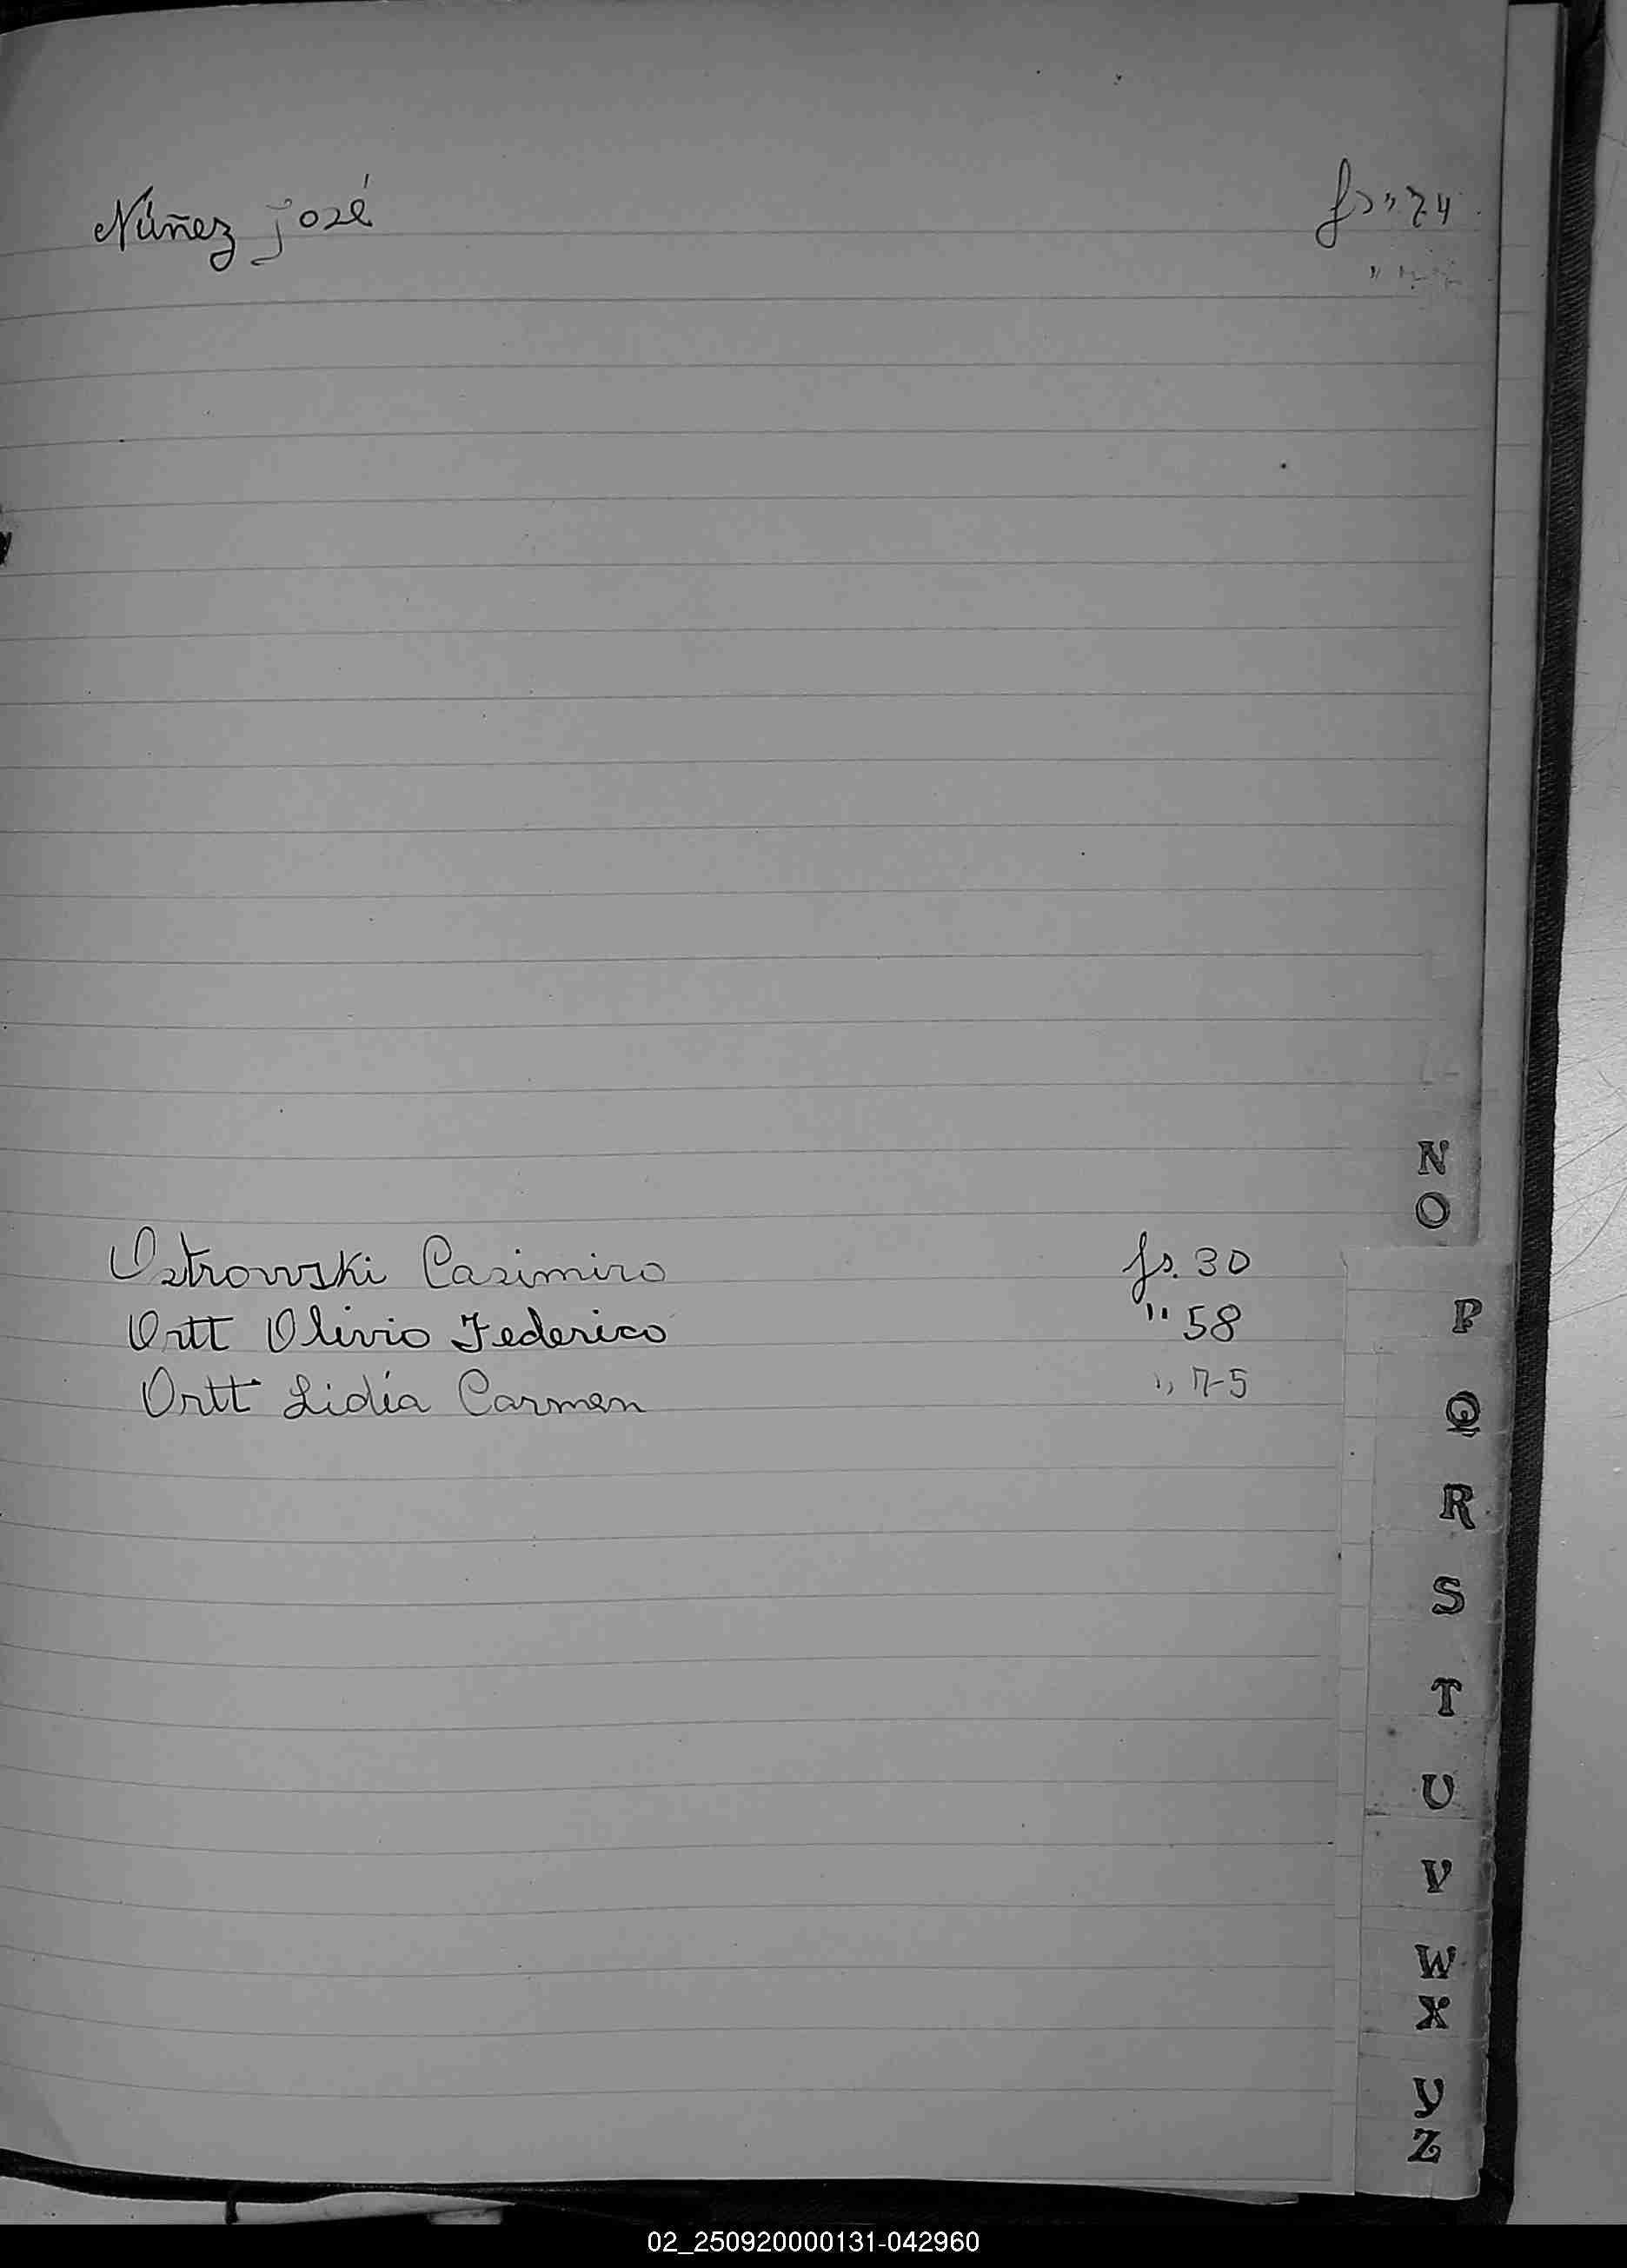 Núñez José fs " 74
Ostrowski Casimiro fs. 30
Ortt Olivio Federico " 58
Ortt Lidia Carmen "
N
O
P
Q
R
S
T
U
V
W
X
Y
Z
02_250920000131-042960